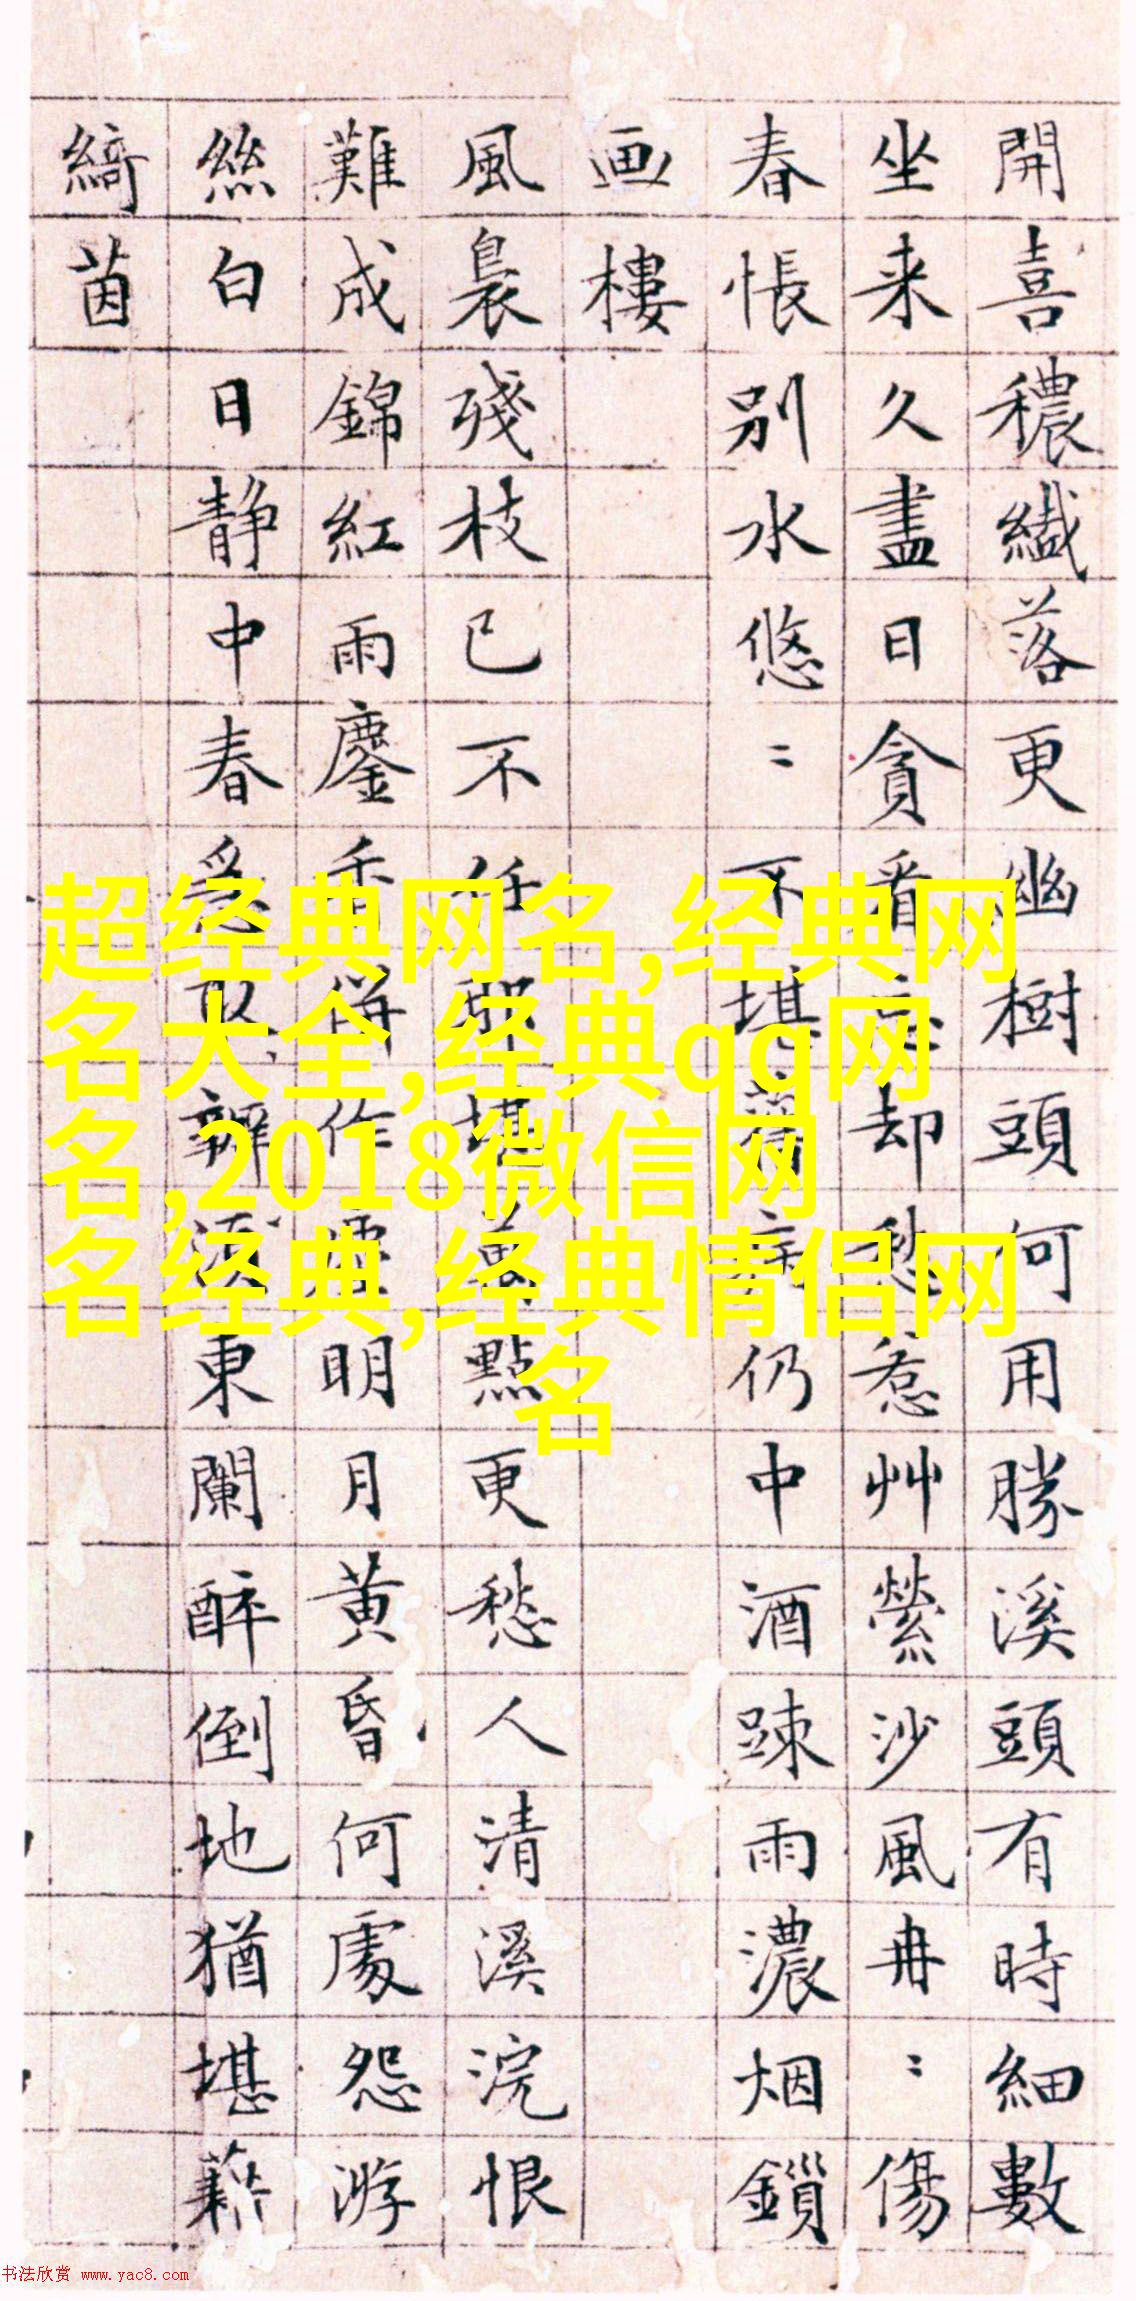 開喜穠纖落更幽樹頭何用勝溪頭有時細數
坐来久盡日貪看却愁惹艸縈沙風冉〻傷
春悵別水悠〻不堪仍中酒踈雨濃烟鎖
画樓
風裊殘枝已不任那堪萬點更愁人清溪浣恨
難成錦紅雨鏖香併作塵明月黄昏何處怨游
絲白日静中春辦東闌醉倒地猶堪藉
綺茵
超经典网名,经典网
名大全,经典qq网
名,2018微信网
名经典,经典情侣网
名
书法欣赏 www.yac8.com